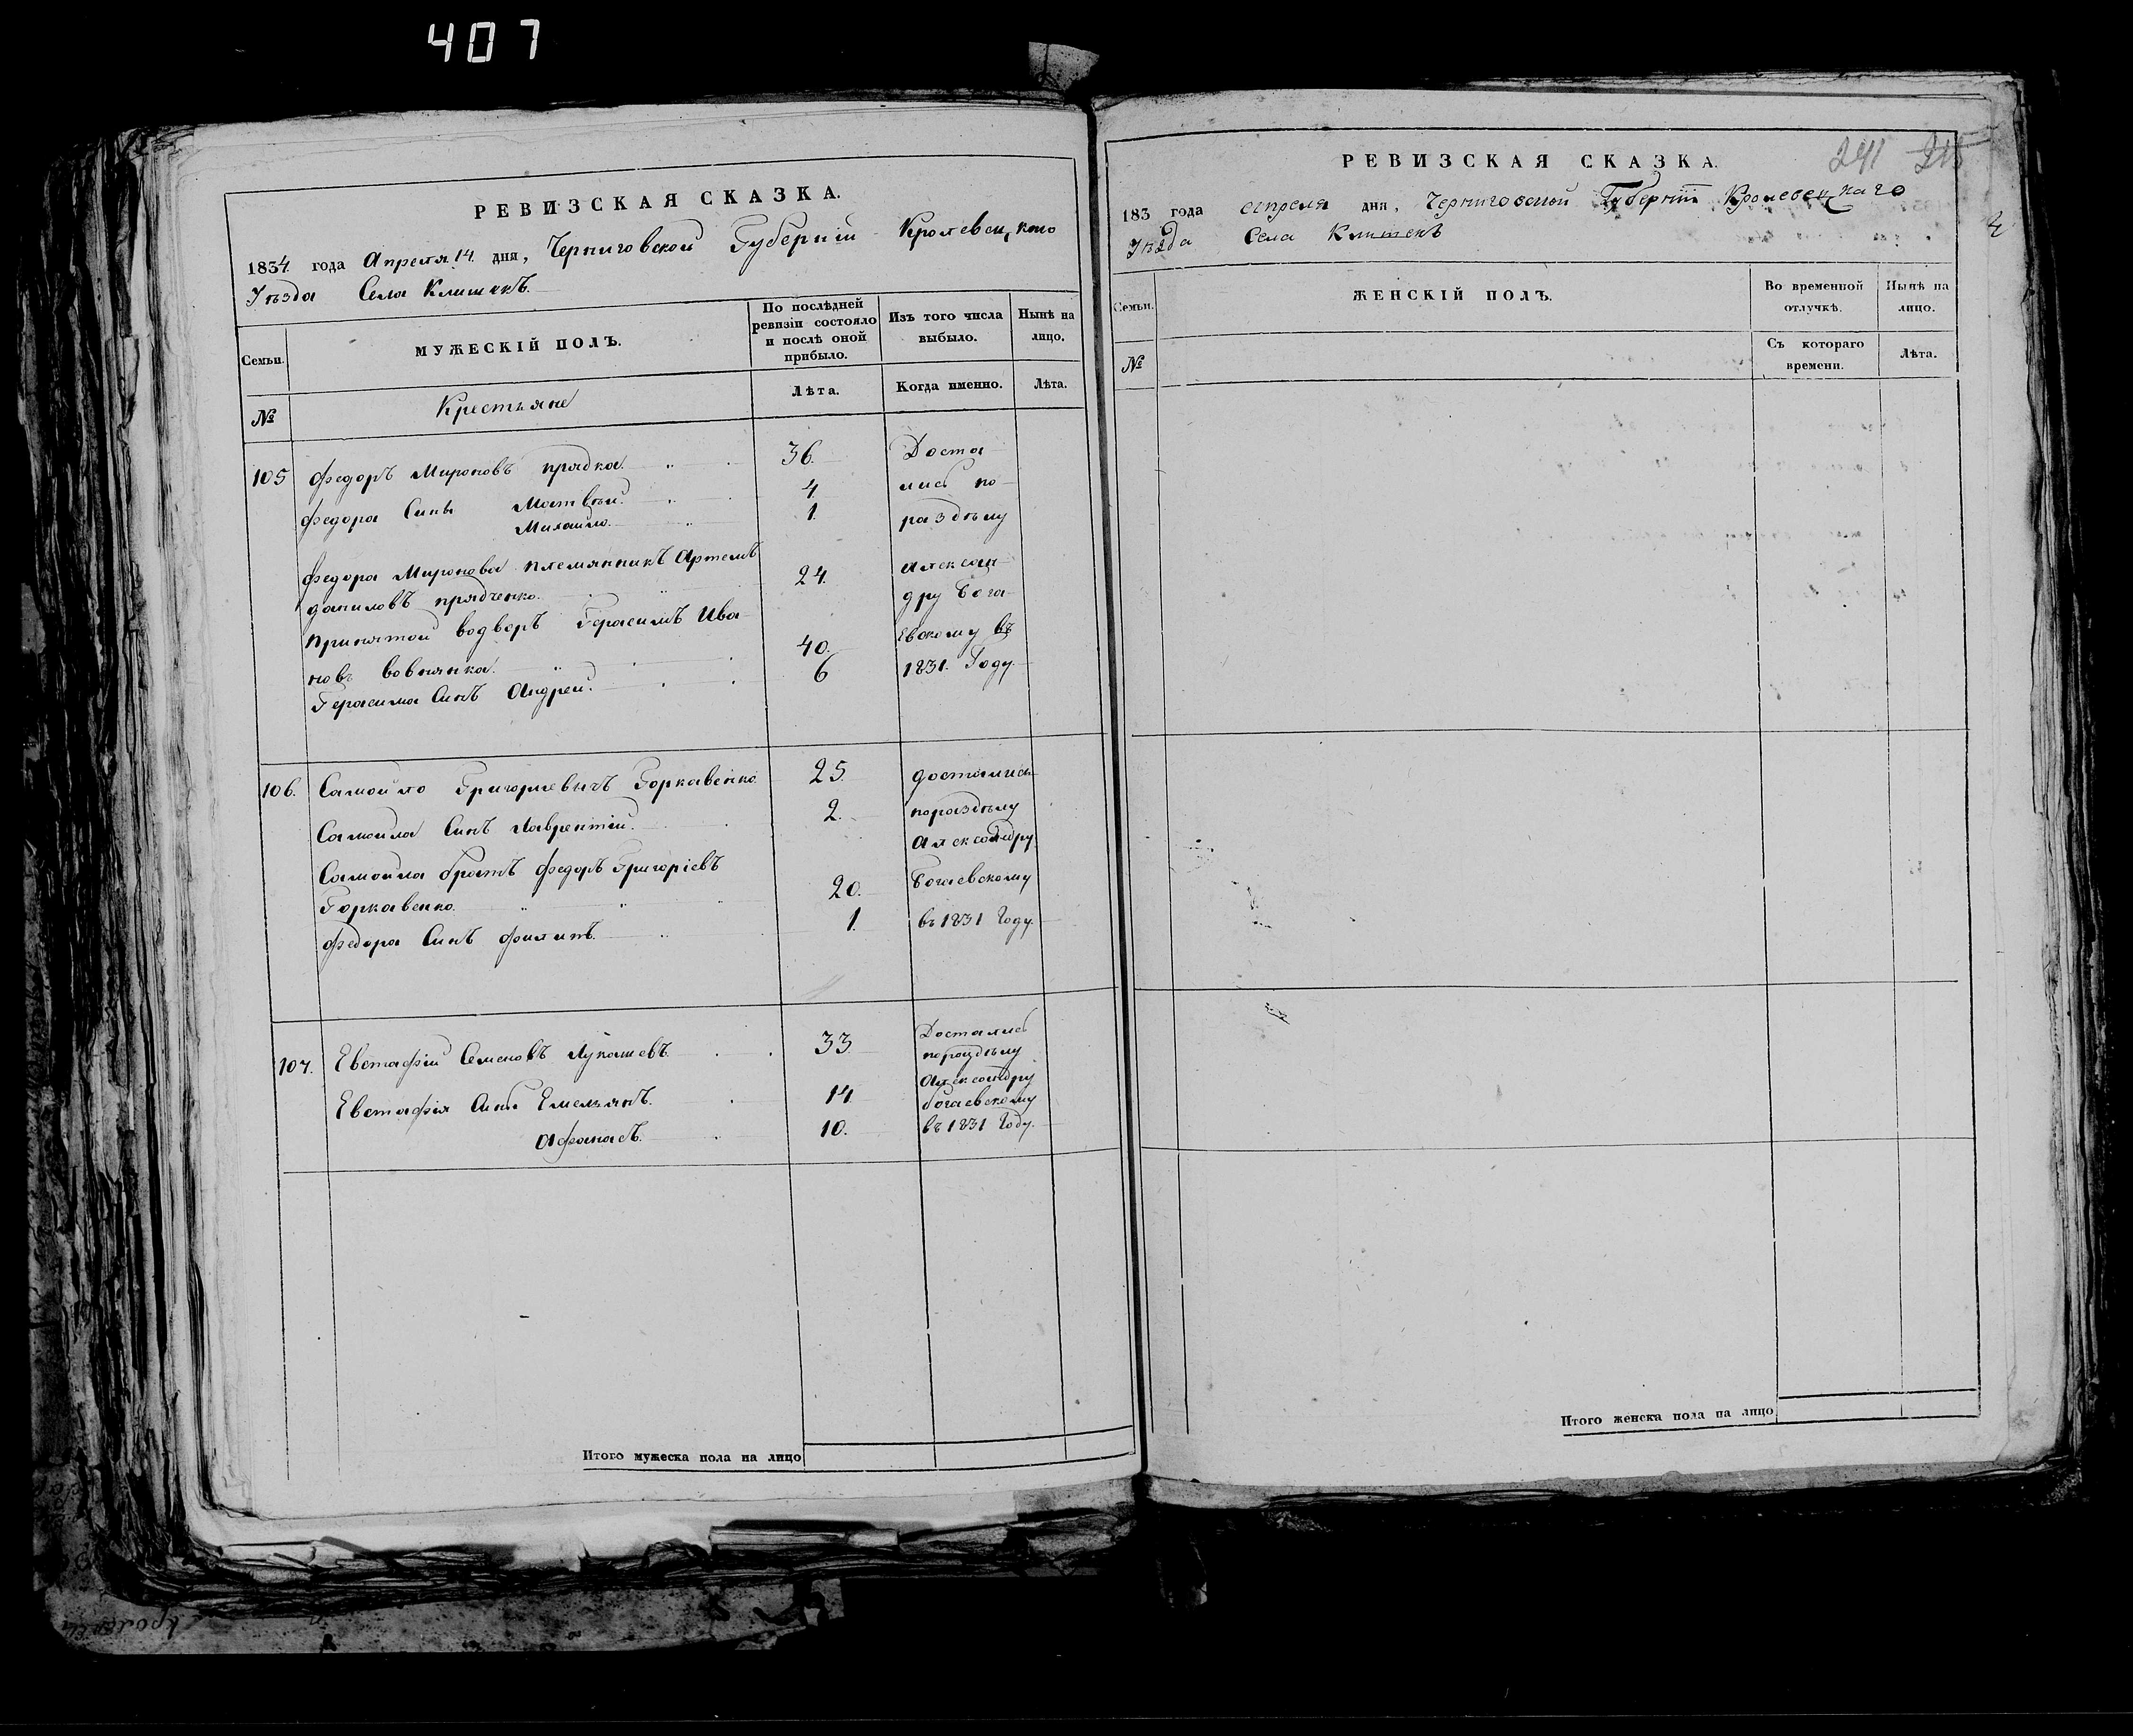 407
РЕВИЗСКАЯ СКАЗКА.
1834 года Апреля 14 дня, Черниговской Губерніи Кролевецкаго
Уѣзда Села Клишекъ.
Семьи.
МУЖЕСКІЙ ПОЛЪ.
По послѣдней ревизіи состояло и послѣ оной прибыло.
Изъ того числа выбыло.
Нынѣ на лицо.
№
Крестьяне
Лѣта.
Когда именно.
Лѣта.
105 Федоръ Мироновъ прядка. 36. Доста
Федора Сины Матвѣй. 4 лись по
Михайло. 1. раздѣлу
Федора Миронова племянникъ Артемъ Алексан
даниловъ прядченко. 24. дру Бога
Принятой водворъ Герасимъ Ива евскому въ
новъ вовнянка. 40. 1831. Году.
Герасима Синъ Андрей. 6
106. Самойло Григориевичъ Горкавенко 25. достались
Самойла Синъ Лаврентій. 2. пораздѣлу
Александру
Самойла братъ Федоръ Григоріевъ
Горкавенко. 20. Богаевскому
Федора Синъ Филипъ. 1. въ 1831 Году.
107. Евстафій Семеновъ Лукашевъ 33 Достались
пораздѣлу
Александру
Евстафія Сины Емельянъ. 14 богаевскому
Афанасъ. 10. въ 1831 Году.
Итого мужеска пола на лицо
241 215
РЕВИЗСКАЯ СКАЗКА.
183 года апреля дня, Черниговской Губерніи Кролевецкаго
Уѣзда Села Клишекъ
Семьи.
ЖЕНСКІЙ ПОЛЪ.
Во временной отлучкѣ.
Нынѣ на лицо.
№
Съ котораго времени.
Лѣта.
Итого женска пола на лицо